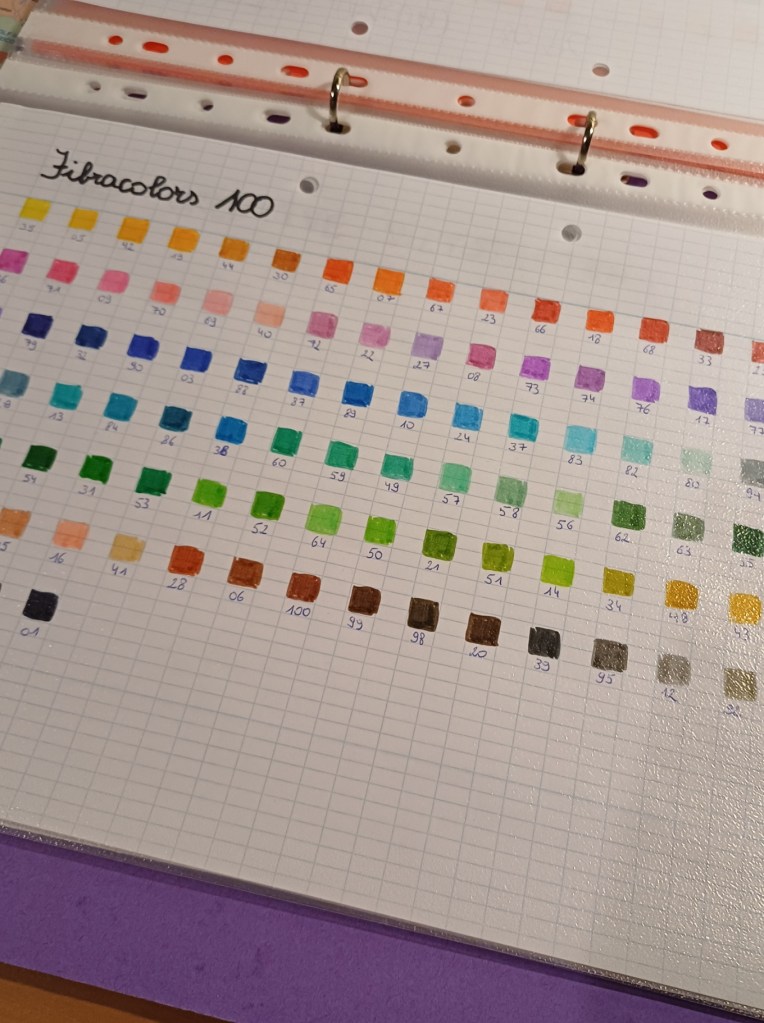 Fibracolors 100
35 05 42 19 44 30 65 07 67 23 66 18 68 33
71 09 70 69 40 72 22 27 08 73 74 76 17 77
79 32 90 03 88 87 89 10 24 37 83 82 80 94
13 84 86 38 60 59 49 57 58 56 62 63
54 31 53 11 52 64 50 21 51 14 34 48 43
16 41 28 06 100 99 98 20 39 95 12
01